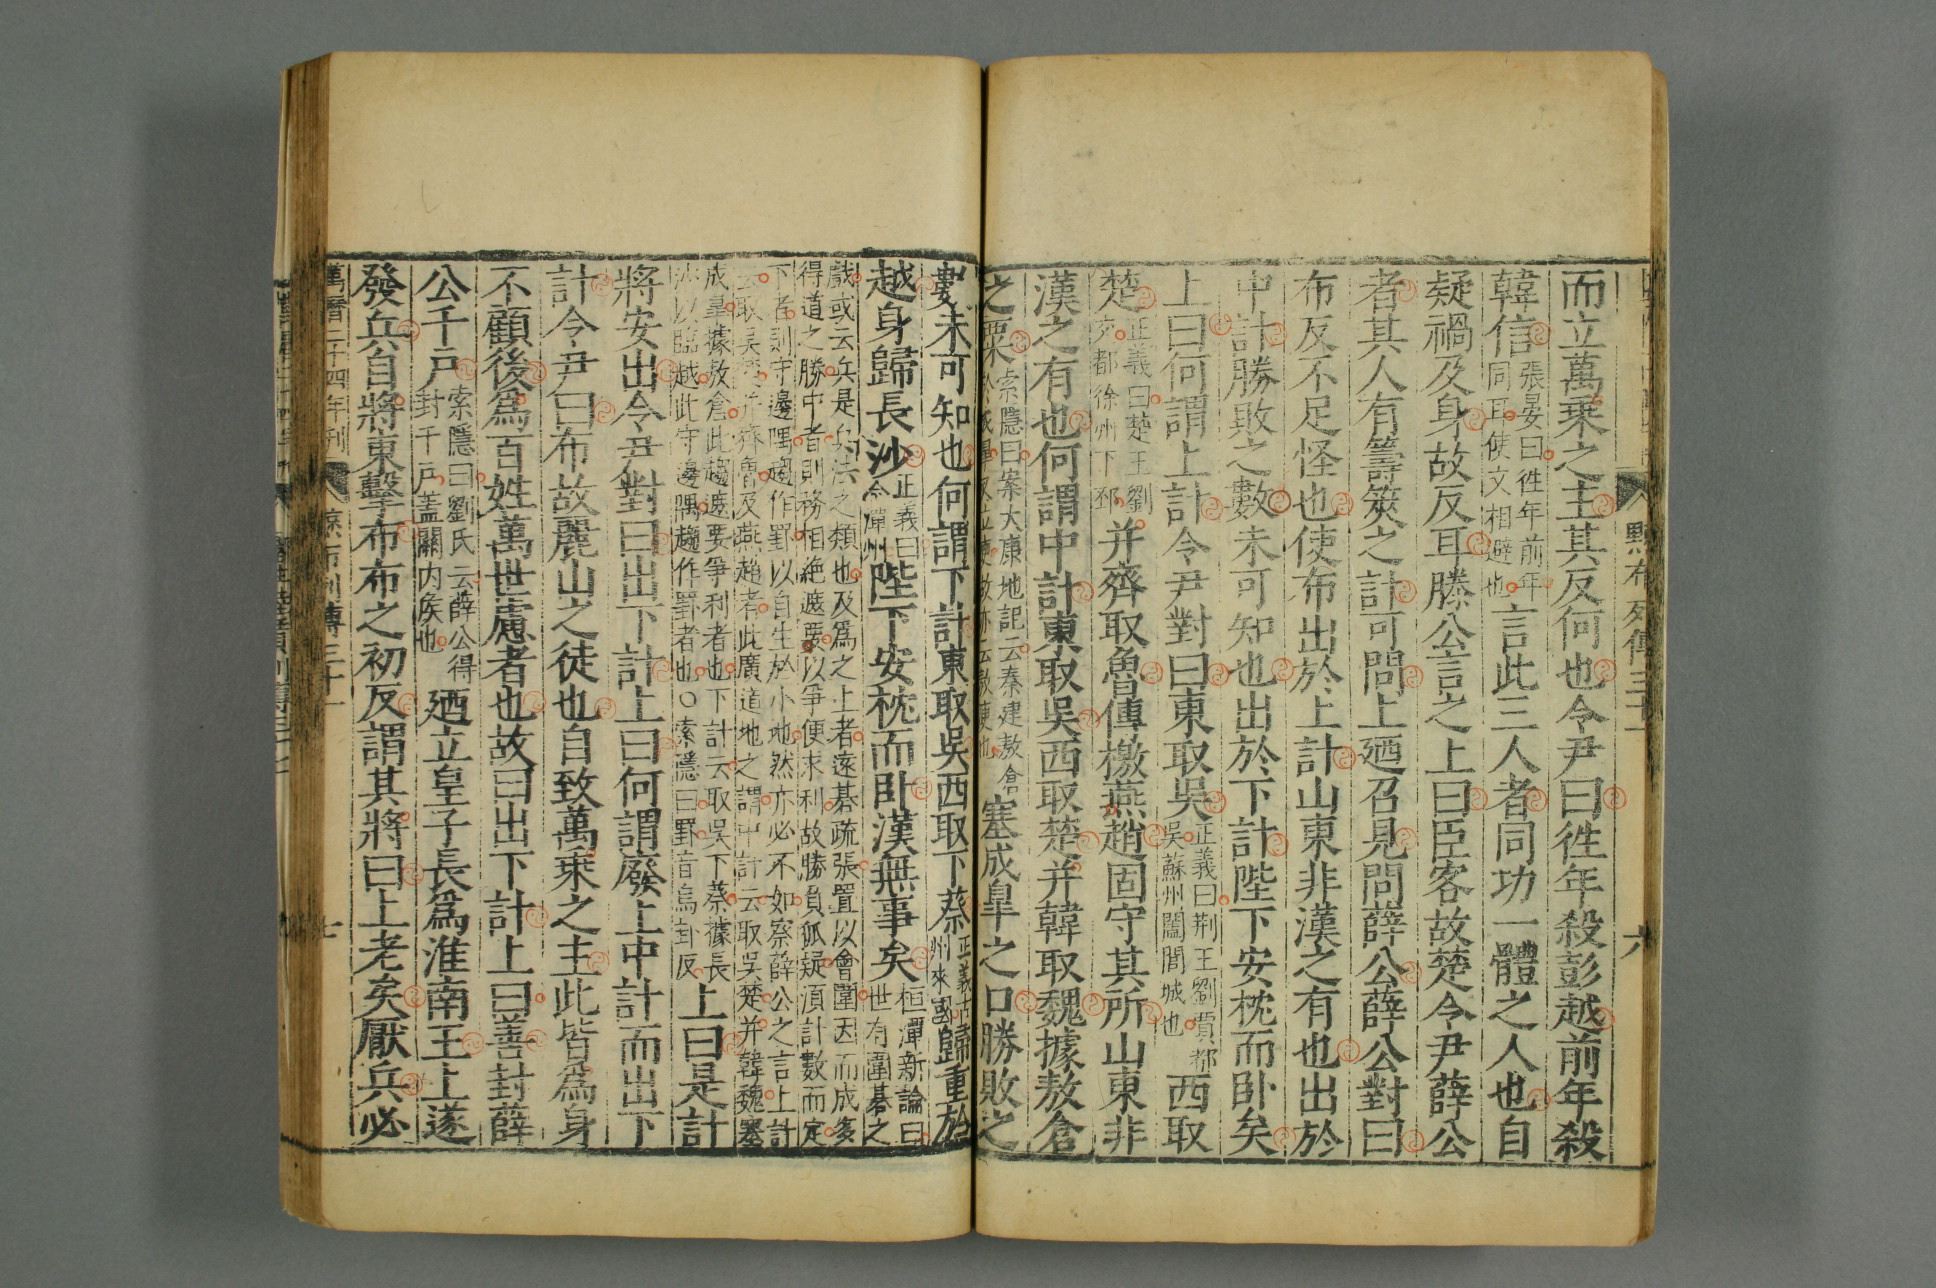 黥布列傳三十一 六
而立萬乘之主其反何也令尹曰徃年殺彭越前年殺
韓信張晏曰徃年前年同耳使文相避也言此三人者同功一體之人也自
疑禍及身故反耳滕公言之上曰臣客故楚令尹薛公
者其人有籌筴之計可問上廼召見問薛公薛公對曰
布反不足怪也使布出於上計山東非漢之有也出於
中計勝敗之數未可知也出於下計陛下安枕而卧矣
上曰何謂上計令尹對曰東取吳正義曰荆王劉賈都吳蘇州闔閭城也西取
楚正義曰楚王劉交都徐州下邳并齊取魯傳檄燕趙固守其所山東非
漢之有也何謂中計東取吳西取楚并韓取魏據敖倉
之粟索隱曰案大康地記云秦建敖倉於成皋又立庾故亦云敖庾也塞成皋之口勝敗之
數未可知也何謂下計東取吳西取下蔡正義古州來國歸重於
越身歸長沙正義曰今潭州陛下安枕而卧漢無事矣桓譚新論曰世有圍碁之
戲或云兵是兵法之類也及爲之上者遠碁疏張置以會圍因而成多
得道之勝中者則務相絶遮要以爭便求利故勝負狐疑須計數而定
下者則守邊隅趨作罫以自生於小地然亦必不如察薛公之言上計
云取吳楚并齊魯及燕趙者此廣道地之謂中計云取吳楚并韓魏塞
成皋據敖倉此趨遮要爭利者也下計云取吳下蔡據長
沙以臨越此守邊隅趨作罫者也○索隱曰罫音烏卦反上曰是計
將安出令尹對曰出下計上曰何謂廢上中計而出下
計令尹曰布故麗山之徒也自致萬乘之主此皆爲身
不顧後爲百姓萬世慮者也故曰出下計上曰善封薛
公千戶索隱曰劉氏云薛公得封千戶盖關内侯也廼立皇子長爲淮南王上遂
發兵自將東擊布布之初反謂其將曰上老矣厭兵必
萬曆二十四年刊 黥布列傳三十一 七